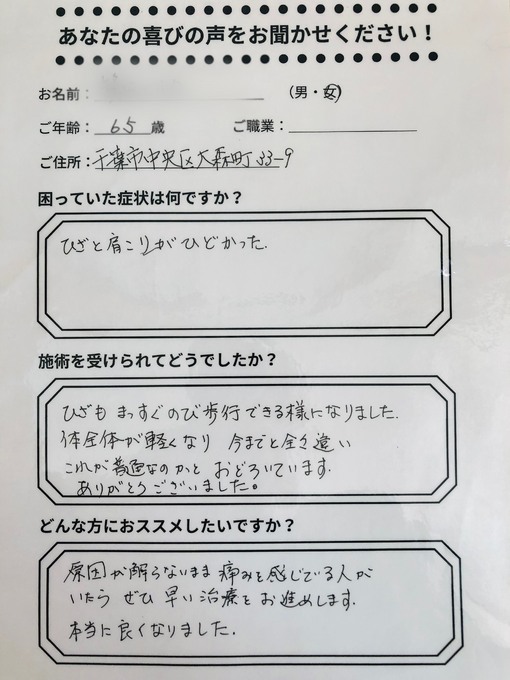 あなたの喜びの声をお聞かせください！
お名前： （男・女）
ご年齢： 65 歳 ご職業：
ご住所： 千葉市中央区大森町33-9
困っていた症状は何ですか？
ひざと肩こりがひどかった.
施術を受けられてどうでしたか？
ひざも まっすぐのび歩行できる様になりました.
体全体が軽くなり 今までと全く違い
これが普通なのかと おどろいています.
ありがとうございました。
どんな方におススメしたいですか？
原因が解らないまま 痛みを感じている人が
いたら ぜひ 早い治療をお進めします.
本当に良くなりました.